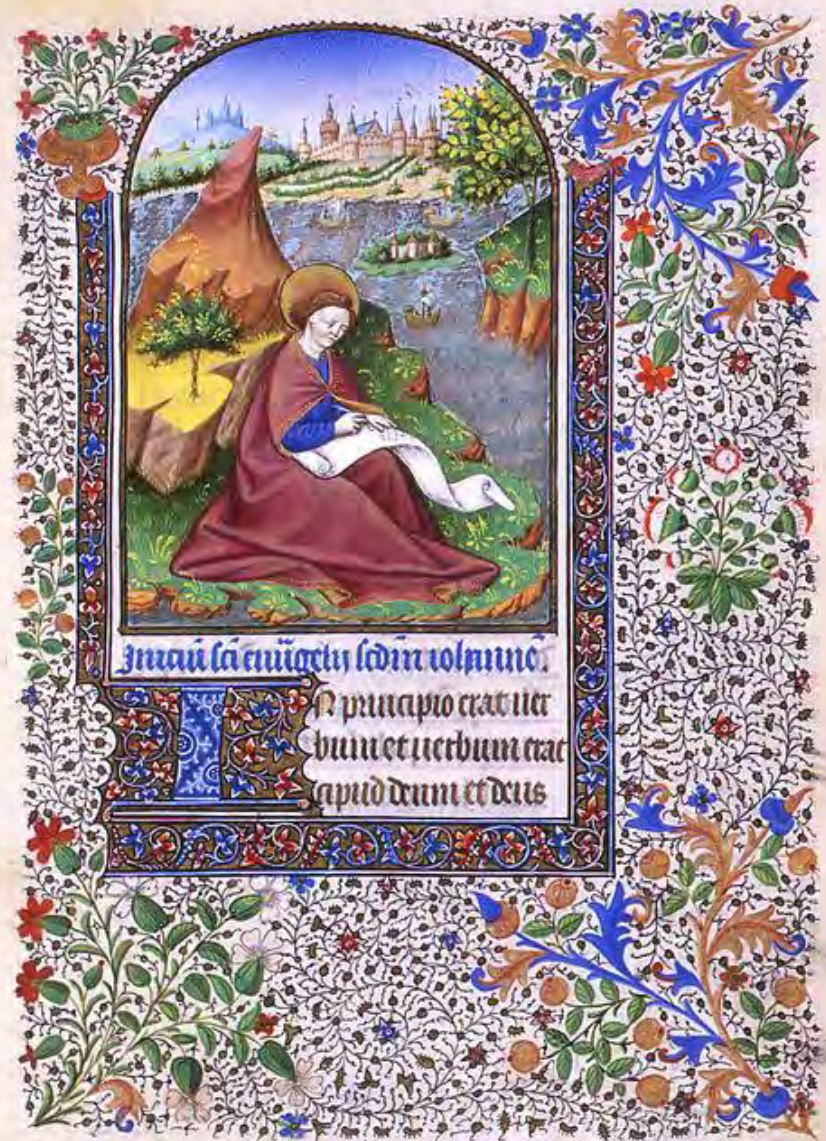 Iniciū scī euāgelij scdm iohanne.
IN principio erat uer
bum et uerbum erat
apud deum et deus